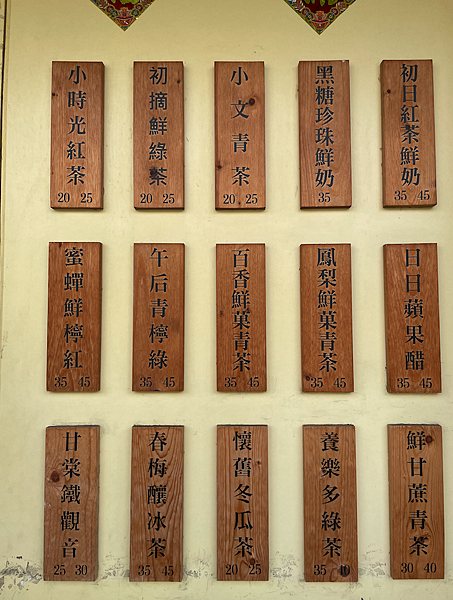 小時光紅茶
20 25
初摘鮮綠茶
20 25
小文青茶
20 25
黑糖珍珠鮮奶
35
初日紅茶鮮奶
35 45
蜜蟬鮮檸紅
35 45
午后青檸綠
35 45
百香鮮菓青茶
35 45
鳳梨鮮菓青茶
35 45
日日蘋果醋
35 45
甘棠鐵觀音
25 30
春梅釀冰茶
35 45
懷舊冬瓜茶
20 25
養樂多綠茶
35 40
鮮甘蔗青茶
30 40